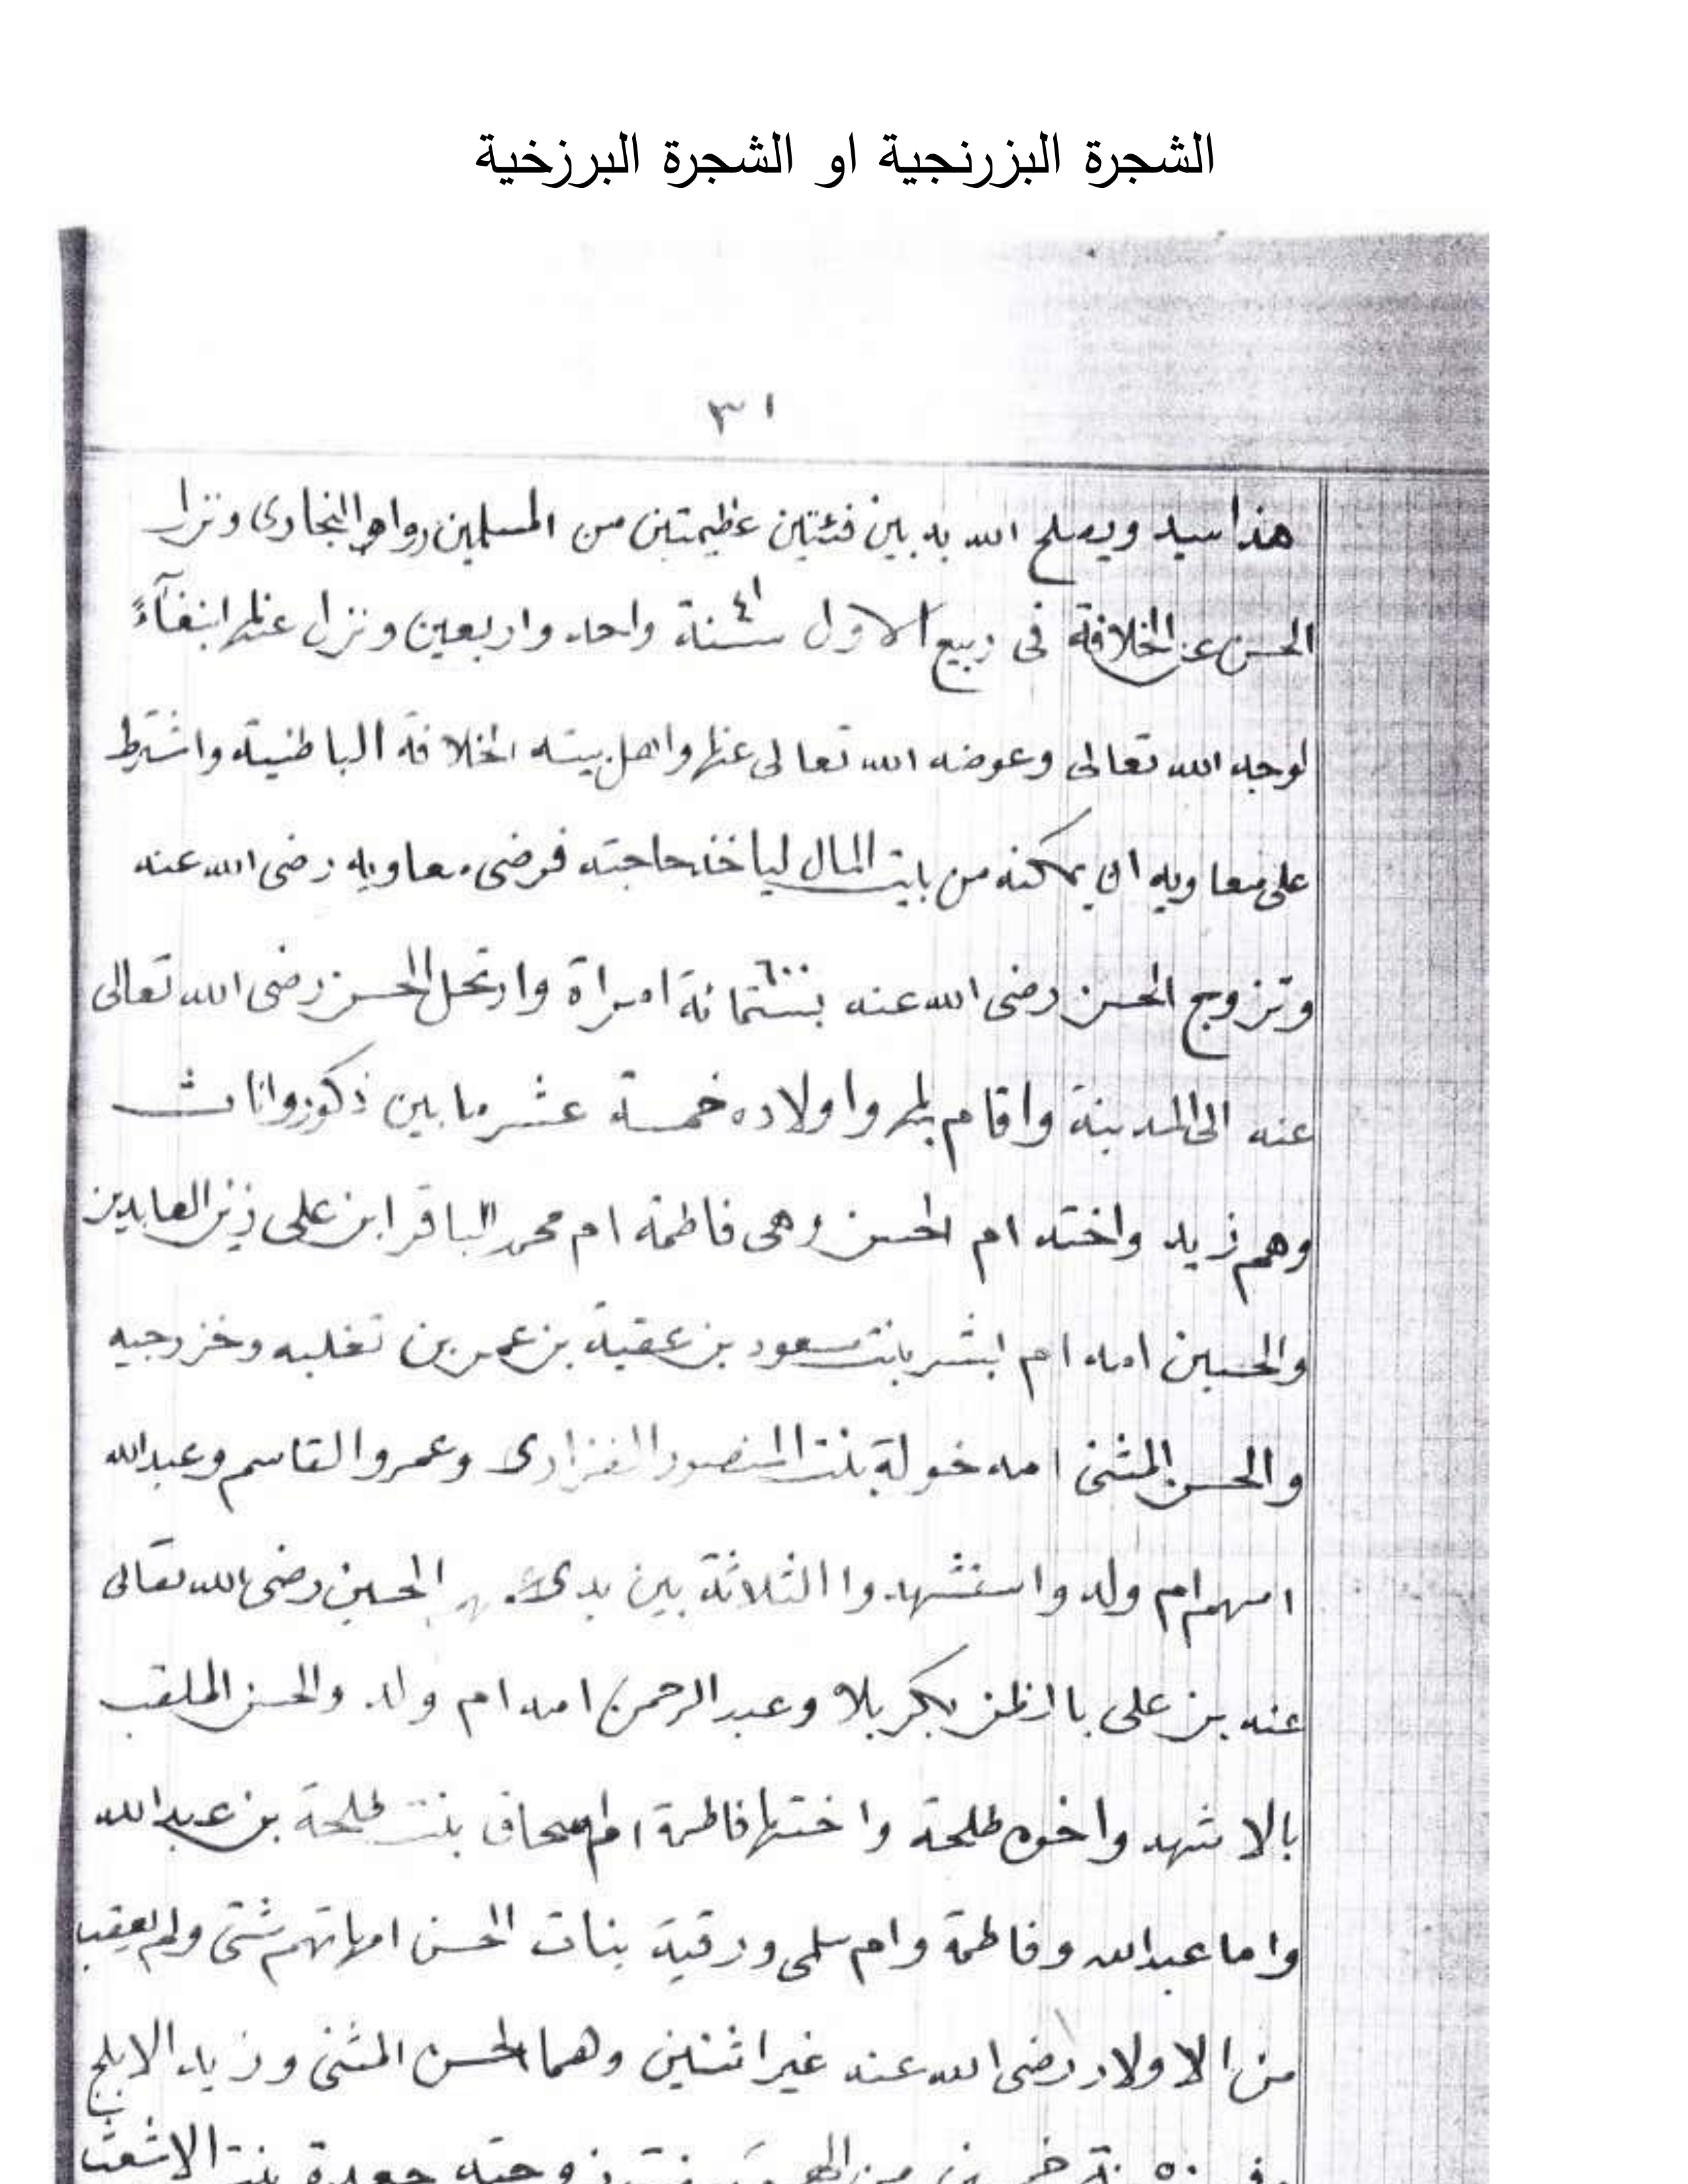 الشجرة البزرنجية او الشجرة البرزخية
٣١
هذا سيد ويصلح الله به بين فئتين عظيمتين من المسلمين رواه البخاري ونزل
الحسن عن الخلافة في ربيع الاول ٤١ سنة واحد واربعين ونزل عنها ابتغآءً
لوجه الله تعالى وعوضه الله تعالى عنها واهل بيته الخلافة الباطنية واشترط
على معاويه ان يمكنه من بايت المال لياخذ حاجته فرضى معاويه رضى الله عنه
وتزوج الحسن رضى الله عنه بستمائة ٦٠٠ امراة وارتحل الحسن رضى الله تعالى
عنه الى المدينة واقام بها واولاده خمسة عشر ما بين ذكور واناث
وهم زيد واخته ام الحسن وهى فاطمة ام محمد الباقر ابن على زين العابدين
والحسين امه ام ابشر بانت مسعود بن عقبة بن عمر بن تغلبه وخزرجيه
والحسن المثنى امه خولة بنت المنصور الفزارى وعمر والقاسم وعبدالله
امهم ام ولد واستشهدوا الثلاثة بين يدى الحسين رضى الله تعالى
عنه بن على باارظن بكربلا وعبد الرحمن امه ام ولد والحسن الملقب
بالاشهد واخوه طلحة واختها فاطمة ام اسحاق بنت طلحة بن عبدالله
واما عبدالله وفاطمة وام سلمى ورقية بنات الحسن امهاتهم شتى ولم يعقب
من الاولاد رضى الله عنه غير اثنين وهما الحسن المثنى وزيد الابلج
خمسين من زوجته جعدة بنت الاشعث